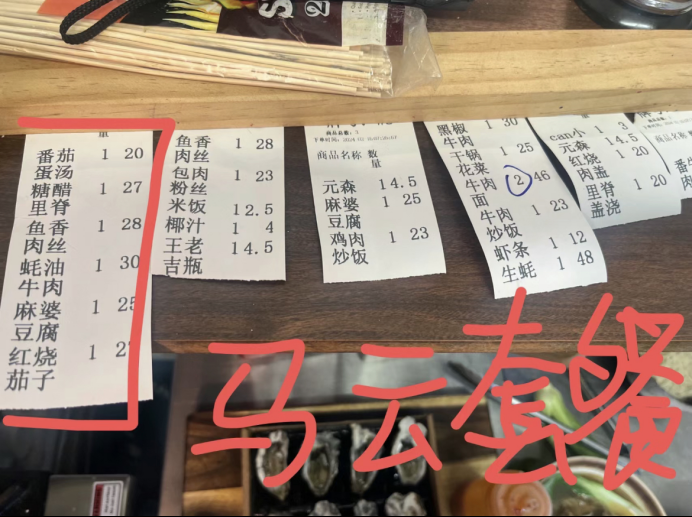 量
番茄 1 20
蛋汤
糖醋 1 27
里脊
鱼香 1 28
肉丝
蚝油 1 30
牛肉
麻婆 1 25
豆腐
红烧 1 2
茄子
鱼香 1 28
肉丝
包肉 1 23
粉丝
米饭 1 2.5
椰汁 1 4
王老 1 4.5
吉瓶
商品总数：5
商品名称 数
量
元森 1 4.5
麻婆 1 25
豆腐
鸡肉 1 23
炒饭
黑椒 1 30
牛肉
干锅 1 25
花菜
牛肉 2 46
面
牛肉 1 23
炒饭
虾条 1 12
生蚝 1 48
can小 1 3
元森 1 4.5
红烧 1 20
肉盖
里脊 1 20
盖浇
马云套餐